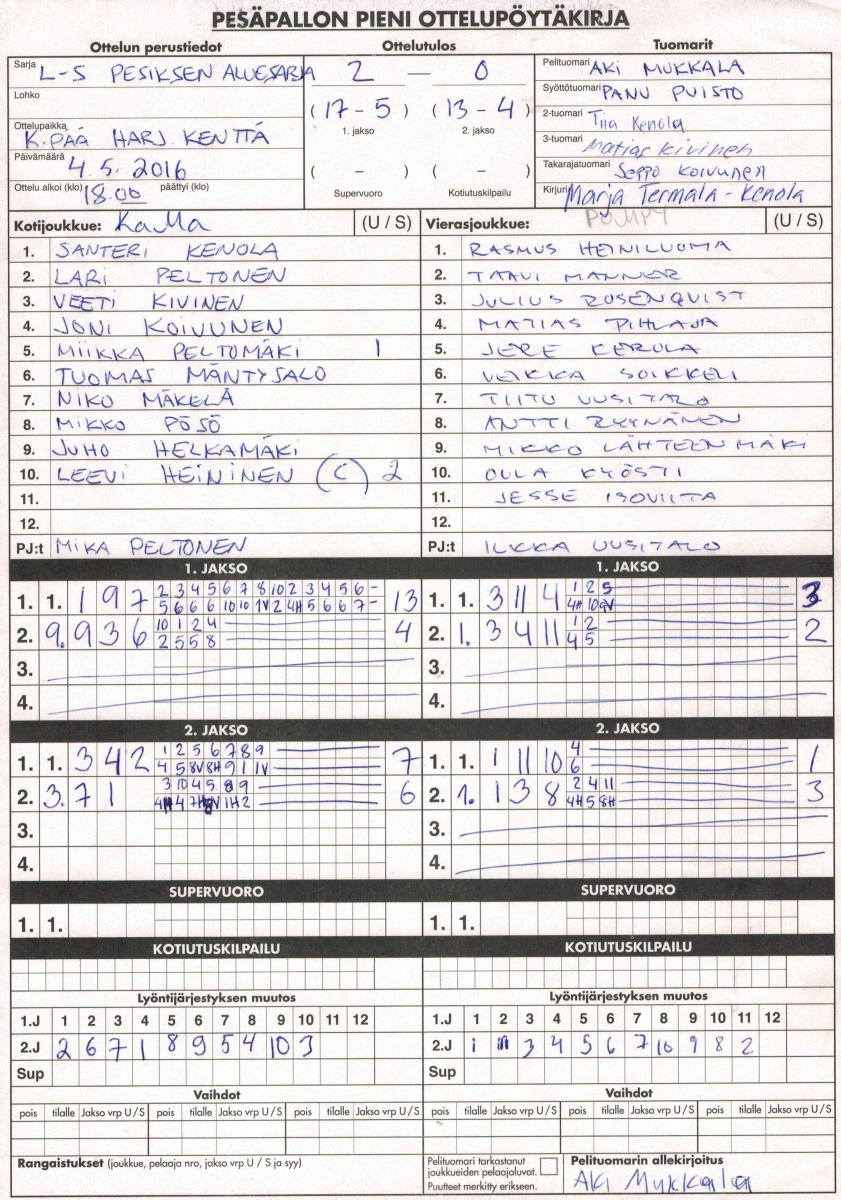 PESÄPALLON PIENI OTTELUPÖYTÄKIRJA
Ottelun perustiedot Ottelutulos Tuomarit
Sarja L-S PESIKSEN ALUESARJA
Lohko
Ottelupaikka K.PÄÄ HARJ. KENTTÄ
Päivämäärä 4.5. 2016
Ottelu alkoi (klo) 18.00 päättyi (klo)
2 — 0
(17 – 5) (13 – 4)
1. jakso 2. jakso
( – ) ( – )
Supervuoro Kotiutuskilpailu
Pelituomari AKI MUKKALA
Syöttötuomari PANU PUISTO
2-tuomari Tiia Kenola
3-tuomari Matias Kivinen
Takarajatuomari Seppo KOIVUNEN
Kirjuri Marja Termala-Kenola
Kotijoukkue: KaMa (U / S)
1. SANTERI KENOLA
2. LARI PELTONEN
3. VEETI KIVINEN
4. JONI KOIVUNEN
5. MIIKKA PELTOMÄKI 1
6. TUOMAS MÄNTYSALO
7. NIKO MÄKELÄ
8. MIKKO PÖSÖ
9. JUHO HELKAMÄKI
10. LEEVI HEININEN (C) 2
11.
12.
PJ:t MIKA PELTONEN
Vierasjoukkue: POMPY (U / S)
1. RASMUS HEINILUOMA
2. TAAVI MANNER
3. JULIUS ROSENQVIST
4. MATIAS PIHLAJA
5. JERE KEROLA
6. VEIKKA SOIKKELI
7. TIITU UUSITALO
8. ANTTI RYYNÄNEN
9. MIKKO LÄHTEENMÄKI
10. OULA KYÖSTI
11. JESSE ISOVIITA
12.
PJ:t ILKKA UUSITALO
1. JAKSO
1. 1. 1 9 7 2 3 4 5 6 7 8 10 2 3 4 5 6 – 13
5 6 6 6 10 10 1V 2 4H 5 6 6 7 –
2. 9. 9 3 6 10 1 2 4 4
2 5 5 8
3.
4.
1. JAKSO
1. 1. 3 11 4 1 2 5 3
4H 10 9V
2. 1. 3 4 11 1 2 2
4 5
3.
4.
2. JAKSO
1. 1. 3 4 2 1 2 5 6 7 8 9 7
4 5 8V 8H 9 1 1V
2. 3. 7 1 3 10 4 5 8 9 6
3.
4.
2. JAKSO
1. 1. 1 11 10 4 1
6
2. 1. 1 3 8 2 4 11 3
4H 5 8H
3.
4.
SUPERVUORO SUPERVUORO
1. 1. 1. 1.
KOTIUTUSKILPAILU KOTIUTUSKILPAILU
Lyöntijärjestyksen muutos
1.J 1 2 3 4 5 6 7 8 9 10 11 12
2.J 2 6 7 1 8 9 5 4 10 3
Sup
Lyöntijärjestyksen muutos
1.J 1 2 3 4 5 6 7 8 9 10 11 12
2.J 1 11 3 4 5 6 7 10 9 8 2
Sup
Vaihdot Vaihdot
pois tilalle Jakso vrp U / S pois tilalle Jakso vrp U / S pois tilalle Jakso vrp U / S
pois tilalle Jakso vrp U / S pois tilalle Jakso vrp U / S pois tilalle Jakso vrp U / S
Rangaistukset (joukkue, pelaaja nro, jakso vrp U / S ja syy)
Pelituomari tarkastanut
joukkueiden pelaajaluvat.
Puutteet merkitty erikseen.
Pelituomarin allekirjoitus
Aki Mukkala